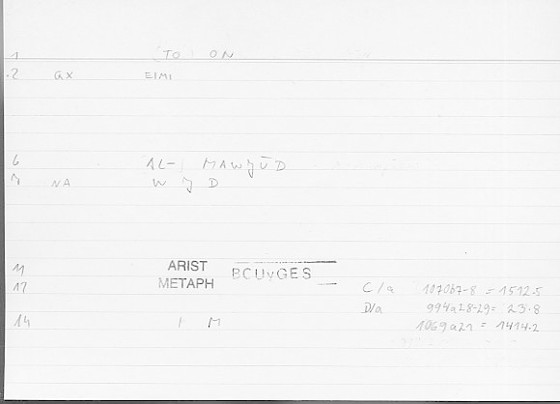 1 (TO ON
2 GX EIMI
6 AL- MAWJŪD
7 NA W J D
11 ARIST BOUYGES
12 METAPH C/a 1070b7-8 = 1512.5
D/a 994a28-29 = 23.8
14 M 1069a21 = 1414.2